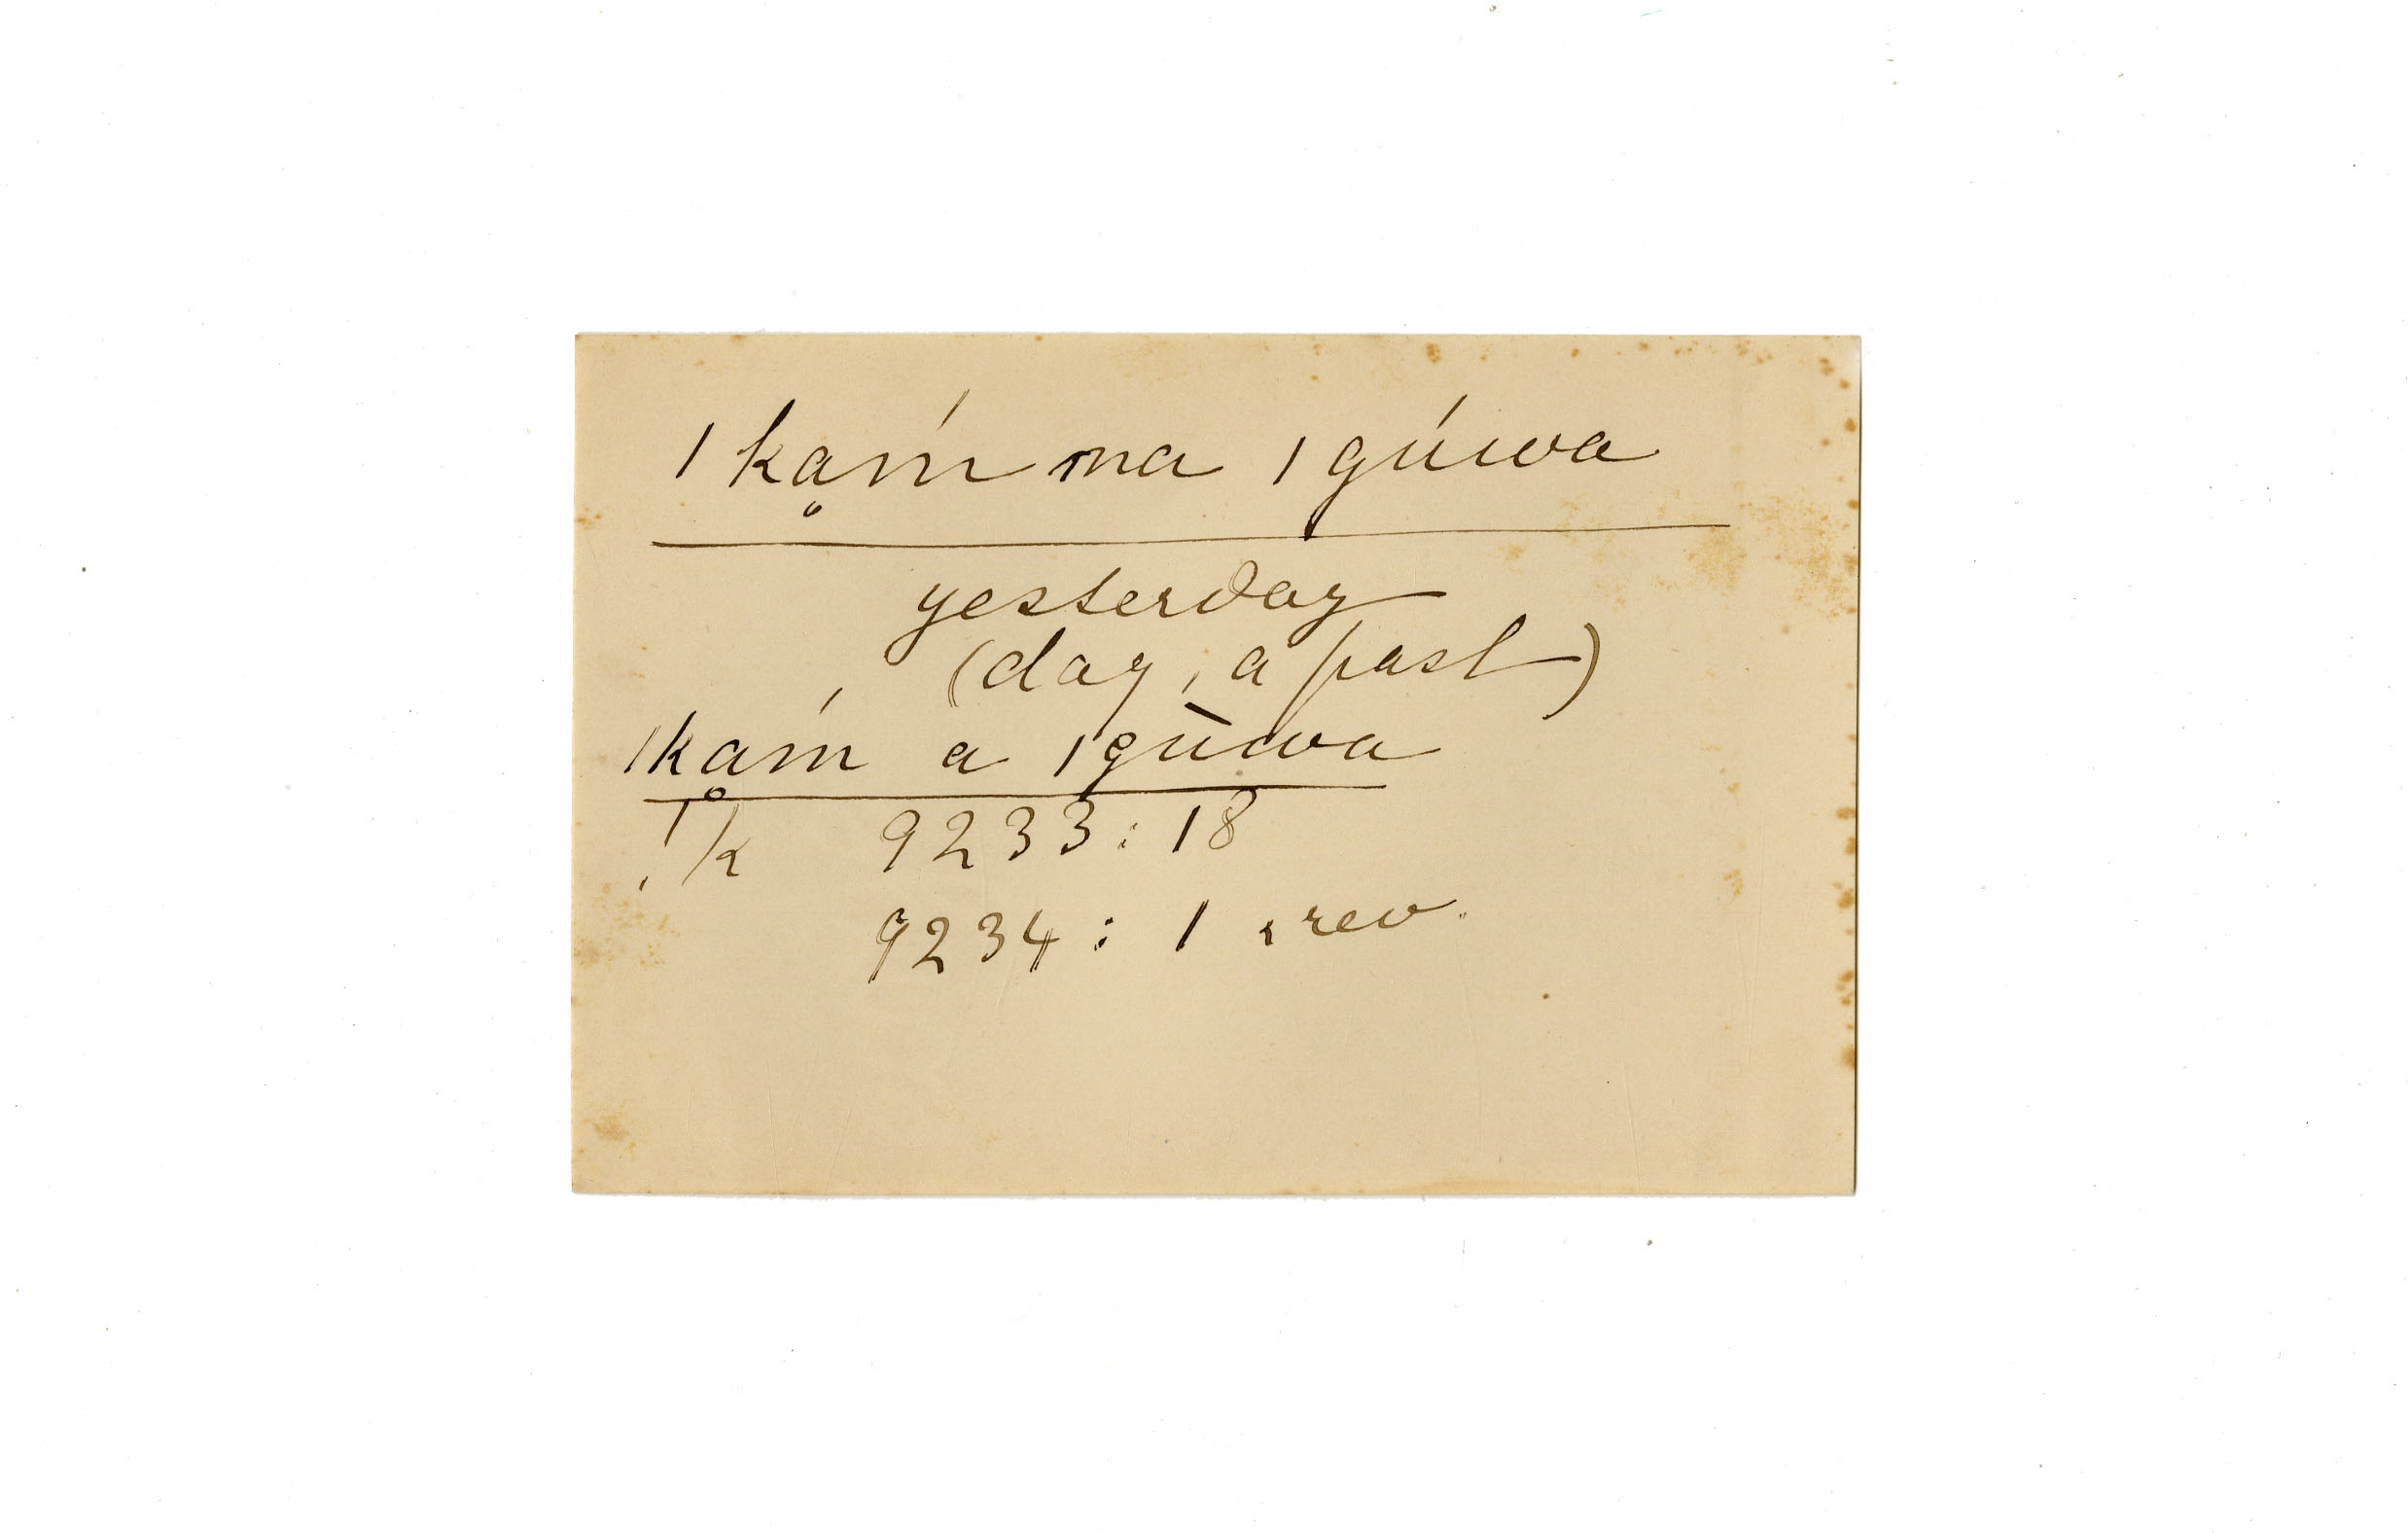 ǀkḁḿ ma ǀgúwa
yesterday
(day, a past)
ǀkḁḿ a ǀgùwa
ǃk 9233:18
9234:1 rev.